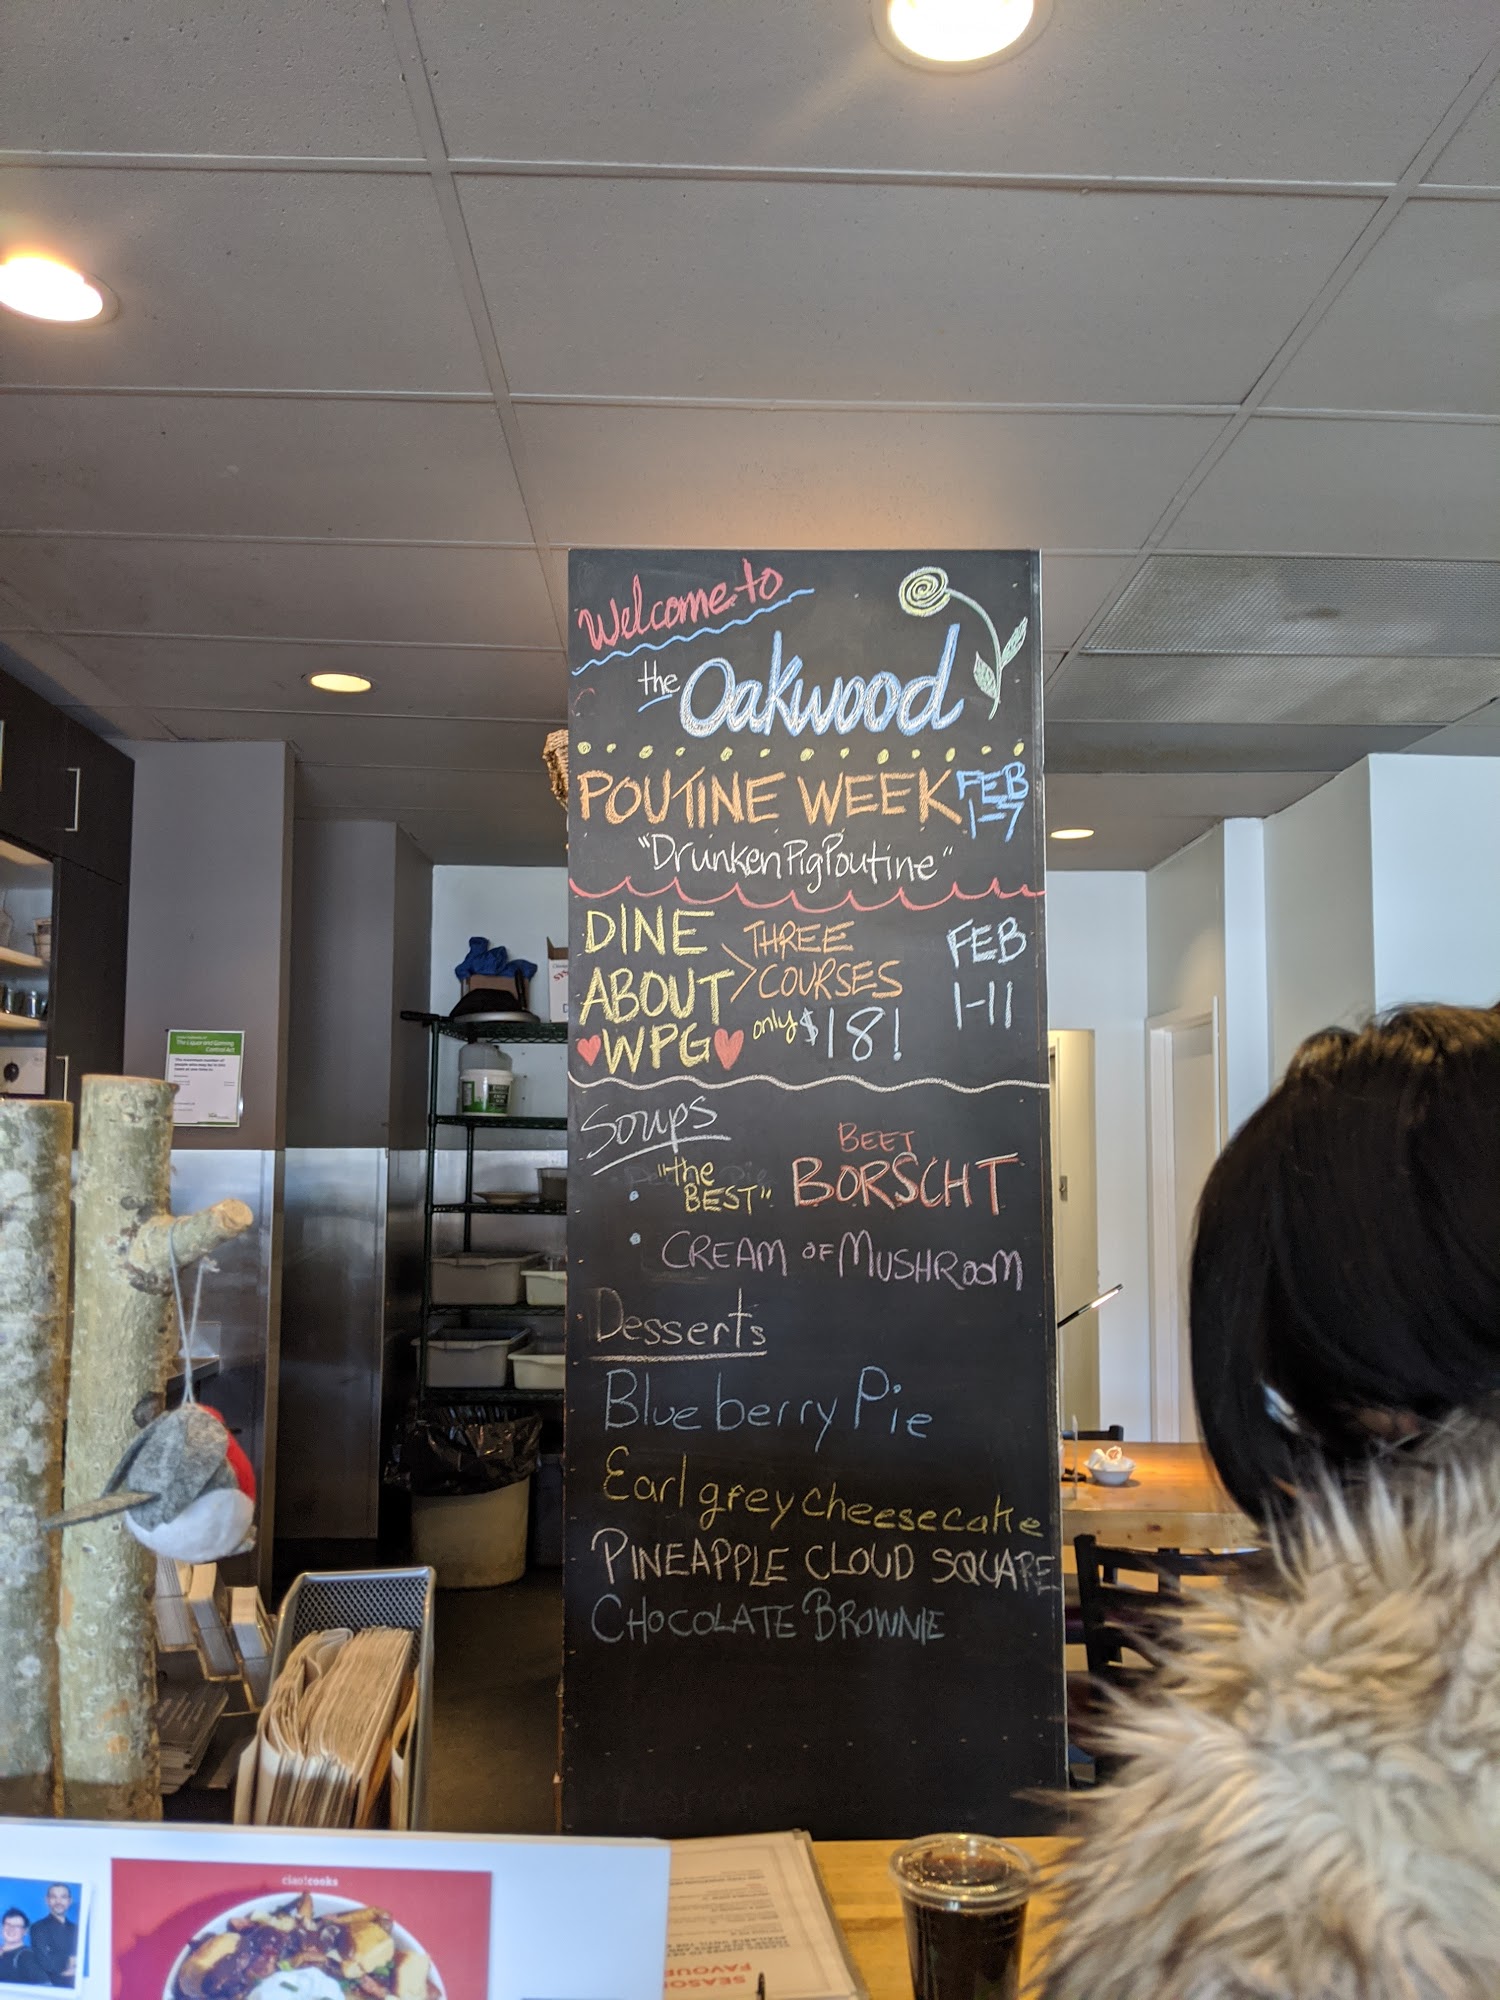 Welcome to
the Oakwood
POUTINE WEEK FEB 1-7
"Drunken Pig Poutine"
DINE ABOUT WPG
THREE COURSES
only $18!
FEB 1-11
Soups
"the BEST" BEET BORSCHT
CREAM OF MUSHROOM
Desserts
Blueberry Pie
Earl grey cheesecake
PINEAPPLE CLOUD SQUARE
CHOCOLATE BROWNIE
The Liquor and Gaming
Control Act
ciao!cooks